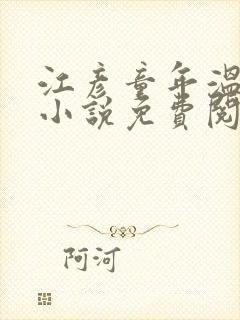 江彦童年温
小说免費閱
阿河